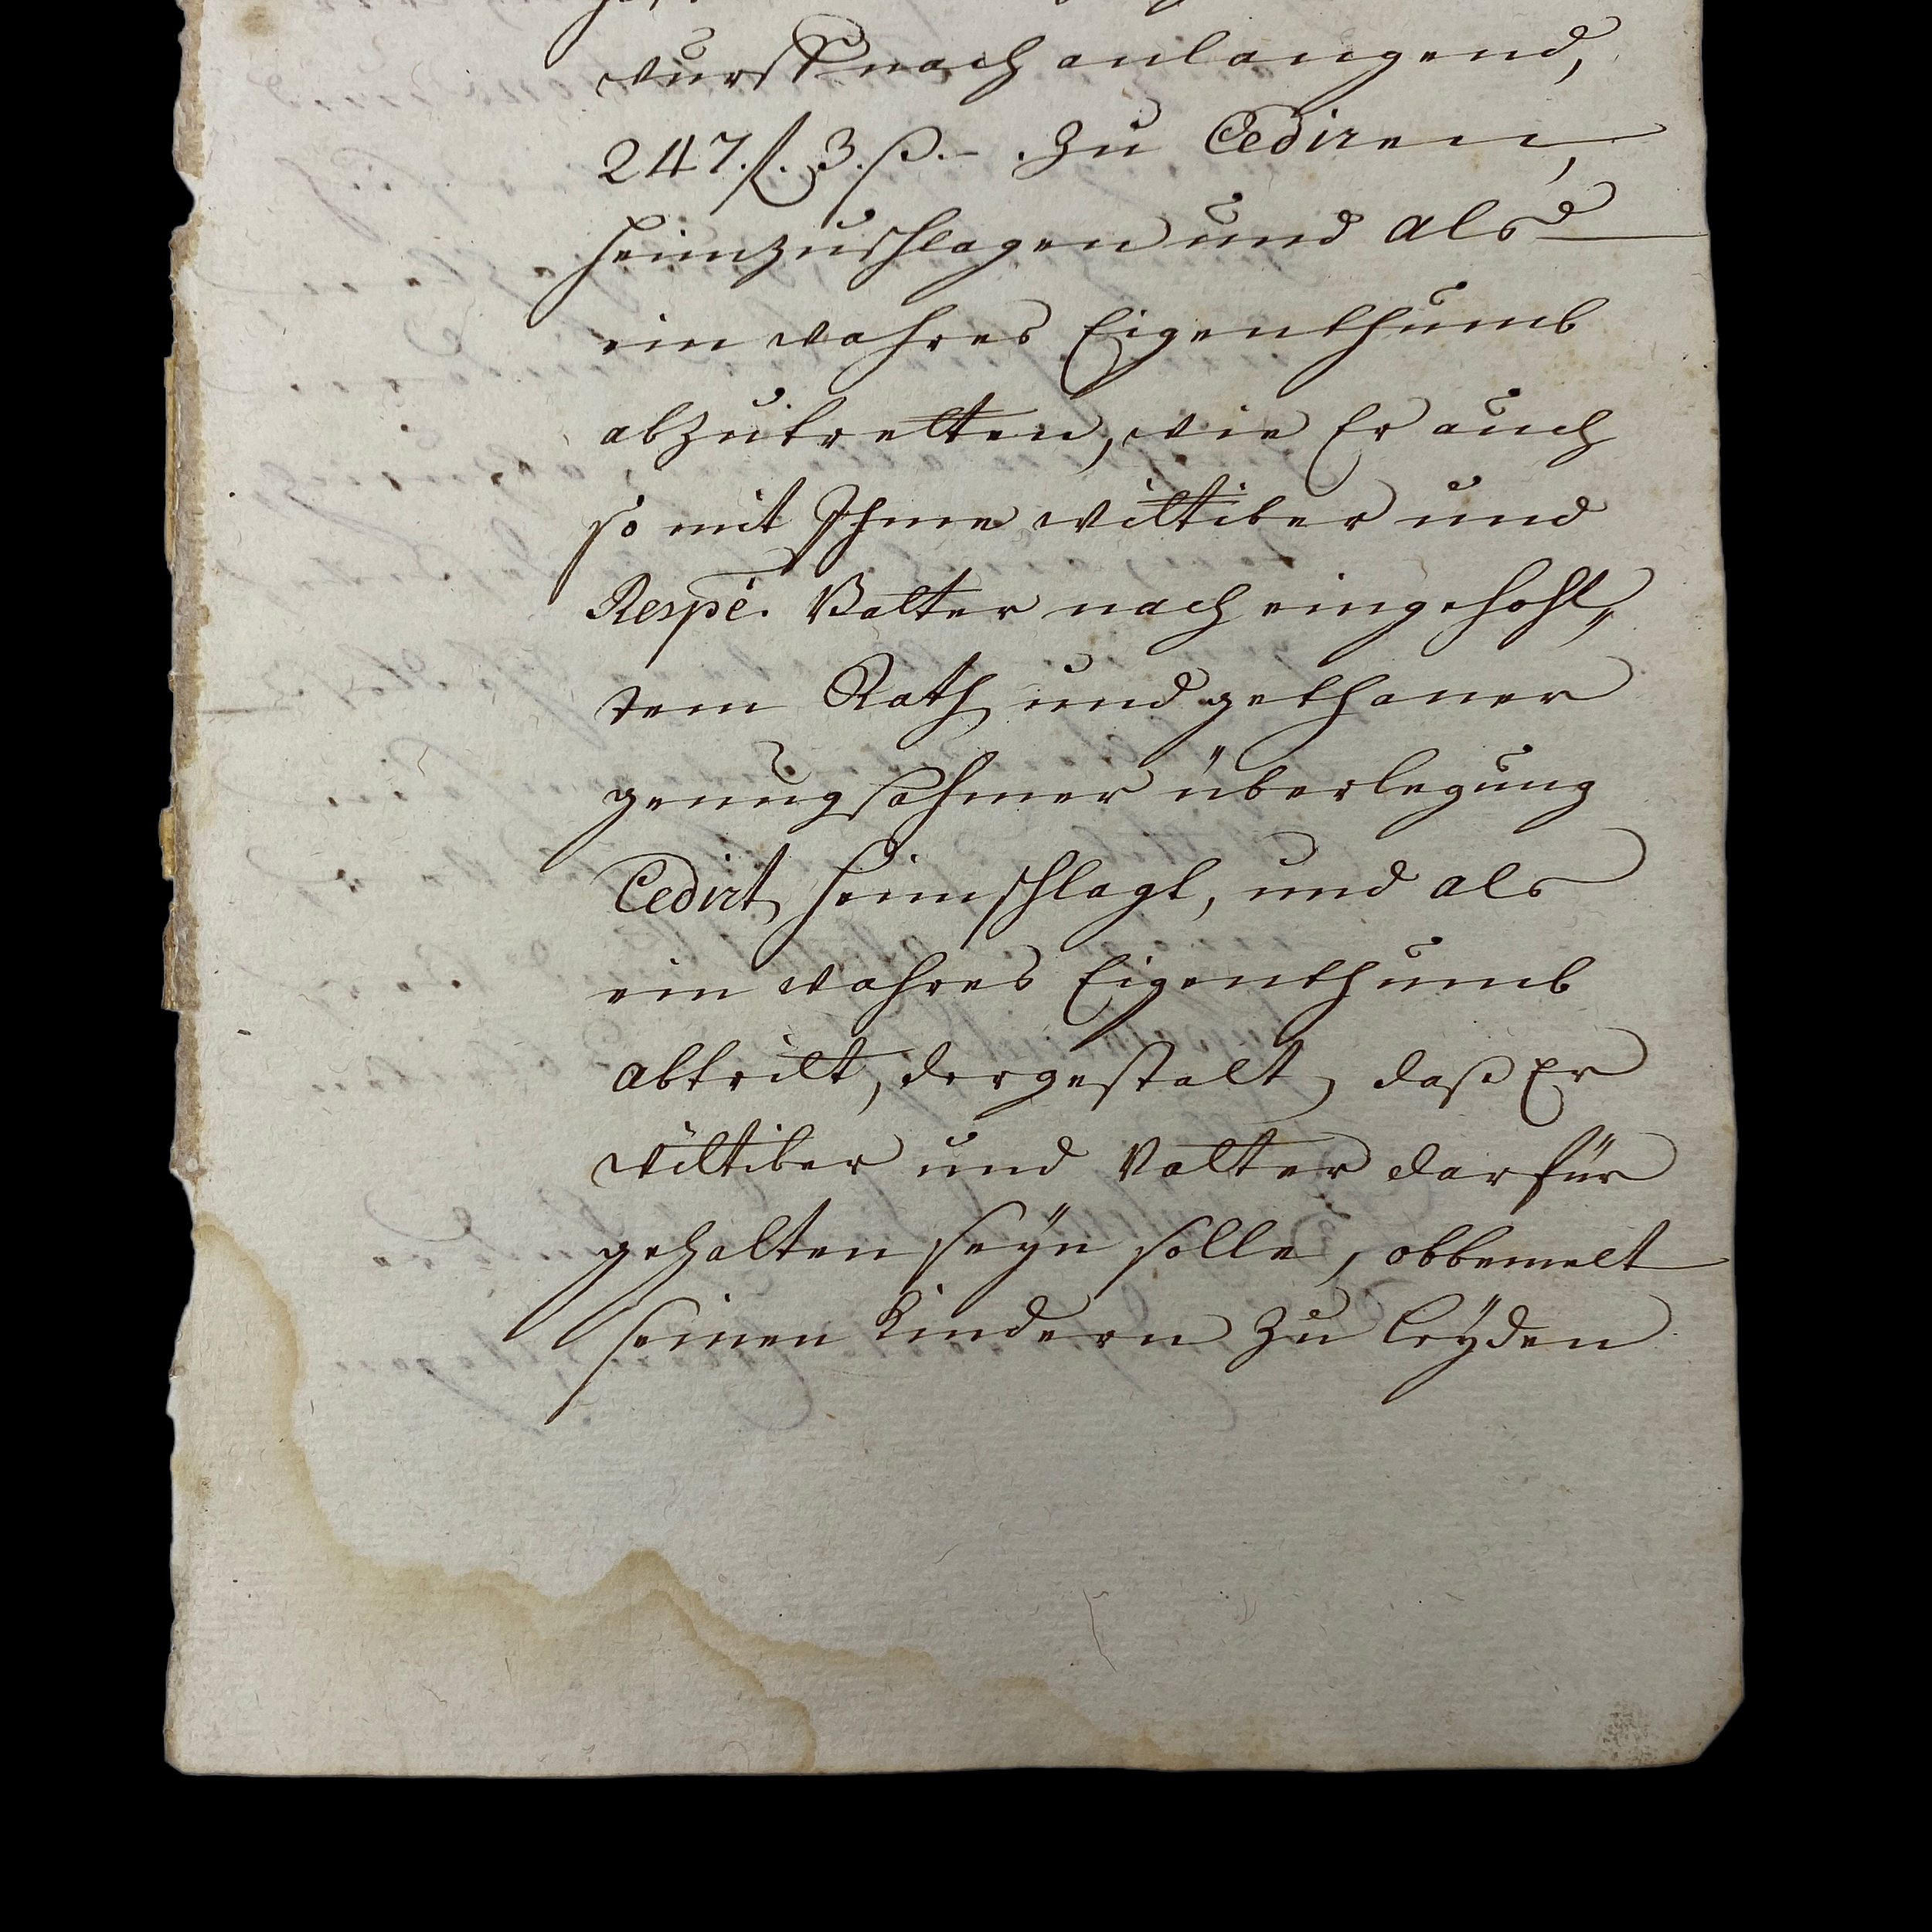 wurst nach anlangend,
247. f. 3. ß. – . zu Cediren,
heimzuschlagen und als
ein wahres Eigenthumb
abzutretten, wie Er auch
so mit Ihme wittiber und
Respè. Vatter nach eingehohl„
tem Rath und gethaner
genugsahmer überlegung
Cedirt heimschlagt, und als
ein wahres Eigenthumb
abtritt, dergestalt, daß Er
wittiber und Vatter darfür
gehalten seÿn solle, obbemelt
seinen Kindern zu leÿden